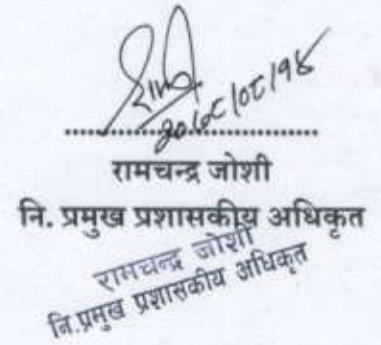 २०७८/०८/१५
रामचन्द्र जोशी
नि. प्रमुख प्रशासकीय अधिकृत
रामचन्द्र जोशी
नि.प्रमुख प्रशासकीय अधिकृत